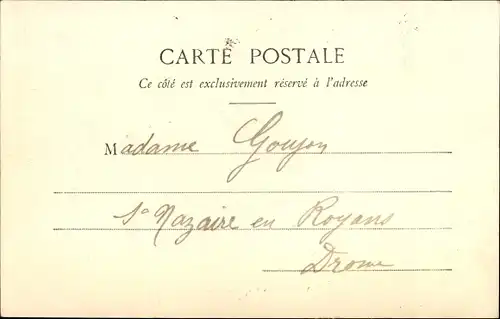 CARTE POSTALE
Ce côté est exclusivement réservé à l'adresse
Madame Goujon
St Nazaire en Royans
Drome